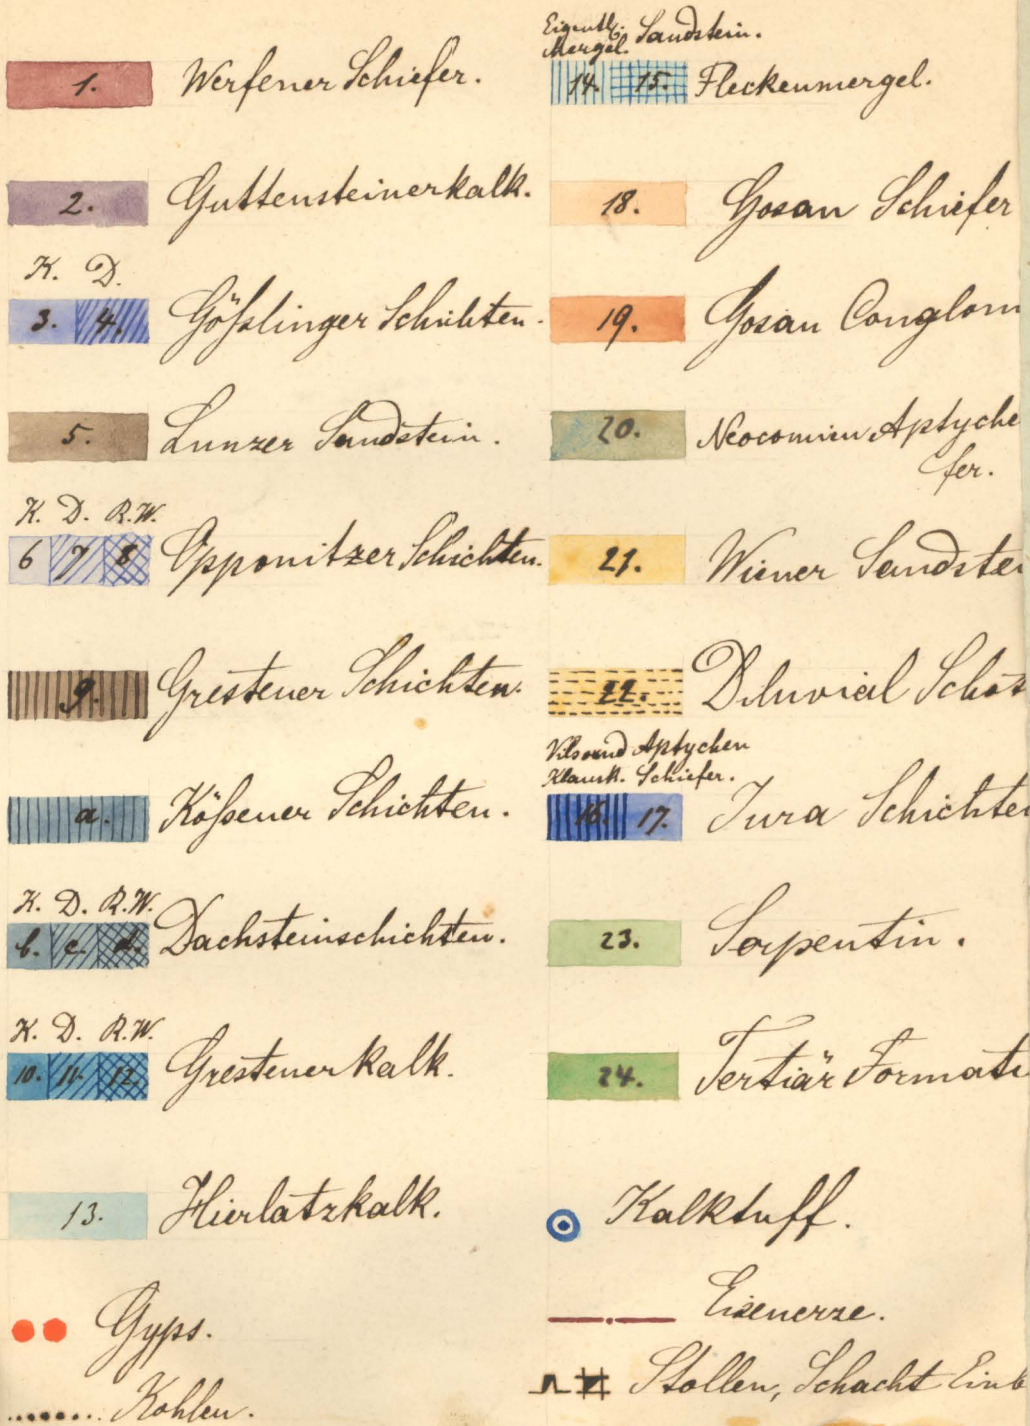 1. Werfener Schiefer.
2. Guttensteinerkalk.
K. D.
3. 4. Gößlinger Schichten.
5. Lunzer Sandstein.
K. D. R.W.
6 7 8 Opponitzer Schichten.
9. Grestener Schichten.
a. Kößener Schichten.
K. D. R.W.
b. c. d. Dachsteinschichten.
K. D. R.W.
10. 11. 12. Grestenerkalk.
13. Hierlatzkalk.
Gyps.
Kohlen.
Eigentl. Sandstein.
Mergel.
14. 15. Fleckenmergel.
18. Gosau Schiefer
19. Gosau Conglom
20. Neocomien Aptyche
fer.
21. Wiener Sandstei
22. Diluvial Schot
Vils und Aptychen
Klausk. Schiefer.
16. 17. Jura Schichten
23. Serpentin.
24. Tertiär Formati
Kalktuff.
Eisenerze.
Stollen, Schacht Einb